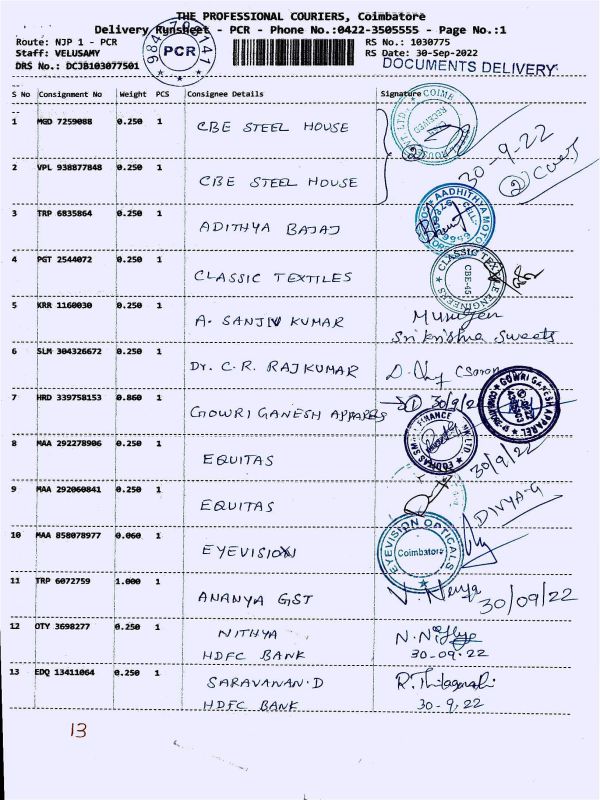 THE PROFESSIONAL COURIERS, Coimbatore
Delivery Runsheet - PCR - Phone No.:0422-3505555 - Page No.:1
Route: NJP 1 - PCR
RS No.: 1030775
Staff: VELUSAMY
RS Date: 30-Sep-2022
DRS No.: DCJB103077501
DOCUMENTS DELIVERY
PCR
S No Consignment No Weight PCS Consignee Details Signature
1 MGD 7259088 0.250 1 CBE STEEL HOUSE
RECEIVED
30-9-22
2 VPL 938877848 0.250 1 CBE STEEL HOUSE
3 TRP 6835864 0.250 1 ADITHYA BAJAJ
AADHITHYA MOTO
4 PGT 2544072 0.250 1 CLASSIC TEXTILES
CLASSIC TEXTILE ENGINEERS
CBE-45
5 KRR 1160030 0.250 1 A. SANJIV KUMAR
Murugen
Sri krishna sweets
6 SLM 304326672 0.250 1 Dr. C. R. RAJKUMAR
7 HRD 339758153 0.860 1 GOWRI GANESH APPARELS
30/9/22
GOWRI GANESH APPAREL
8 MAA 292278906 0.250 1 EQUITAS
EQUITAS SMALL FINANCE BANK LTD
30/9/22
9 MAA 292060841 0.250 1 EQUITAS
DIVYA-G
10 MAA 858078977 0.060 1 EYEVISION
EYEVISION OPTICALS
Coimbatore
11 TRP 6072759 1.000 1 ANANYA GST
30/09/22
12 OTY 3698277 0.250 1 NITHYA
HDFC BANK
30-09-22
13 EDQ 13411064 0.250 1 SARAVANAN.D
HDFC BANK
30-9-22
13